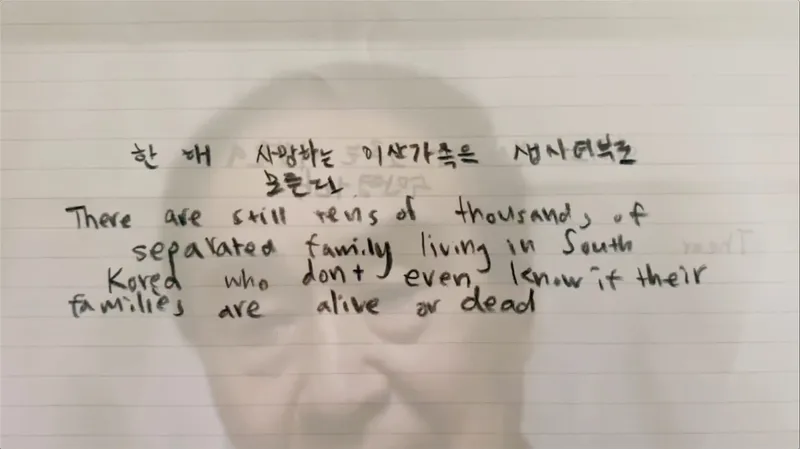 한 해 사망하는 이산가족은 생사여부도
모른다.
There are still tens of thousands of
separated family living in South
Korea who don't even know if their
families are alive or dead